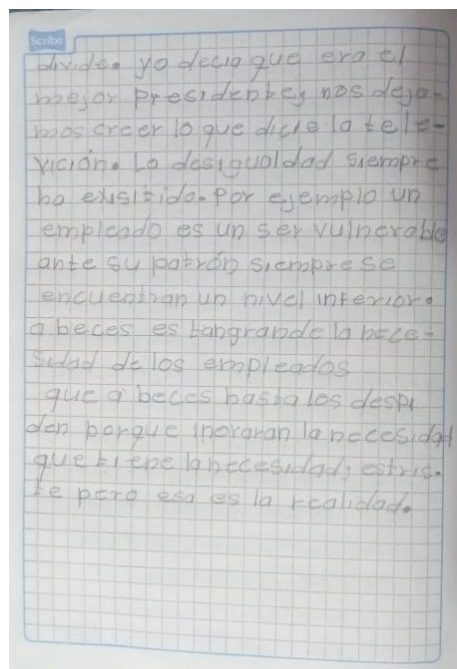 Scribe
divide. yo decia que era el
mejor presidente, nos deja-
mos creer lo que dicie la tele-
vición. La desigualdad siempre
ha exisitido. Por ejemplo un
empleado es un ser vulnerable
ante su patrón siempre se
encuentran un nivel inferior.
a beces es tangrande la nece-
sidad de los empleados
que a beces hasta los despi
den porque inoraran la necesidad
que tiene la necesidad; estris-
te pero esa es la realidad.